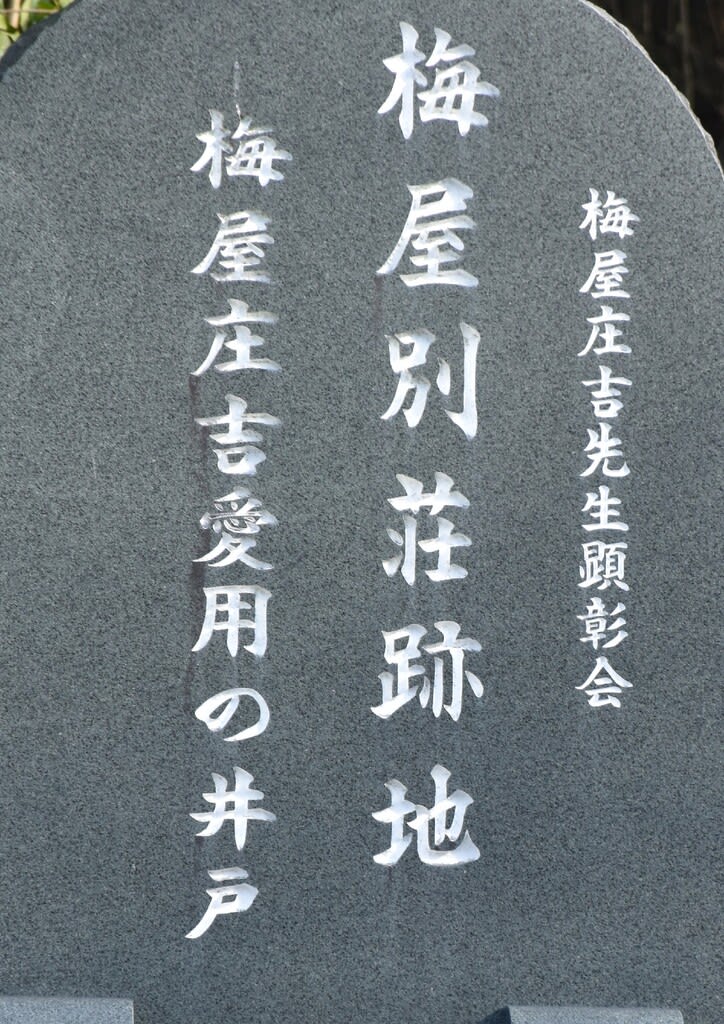 梅屋庄吉先生顕彰会
梅屋別荘跡地
梅屋庄吉愛用の井戸